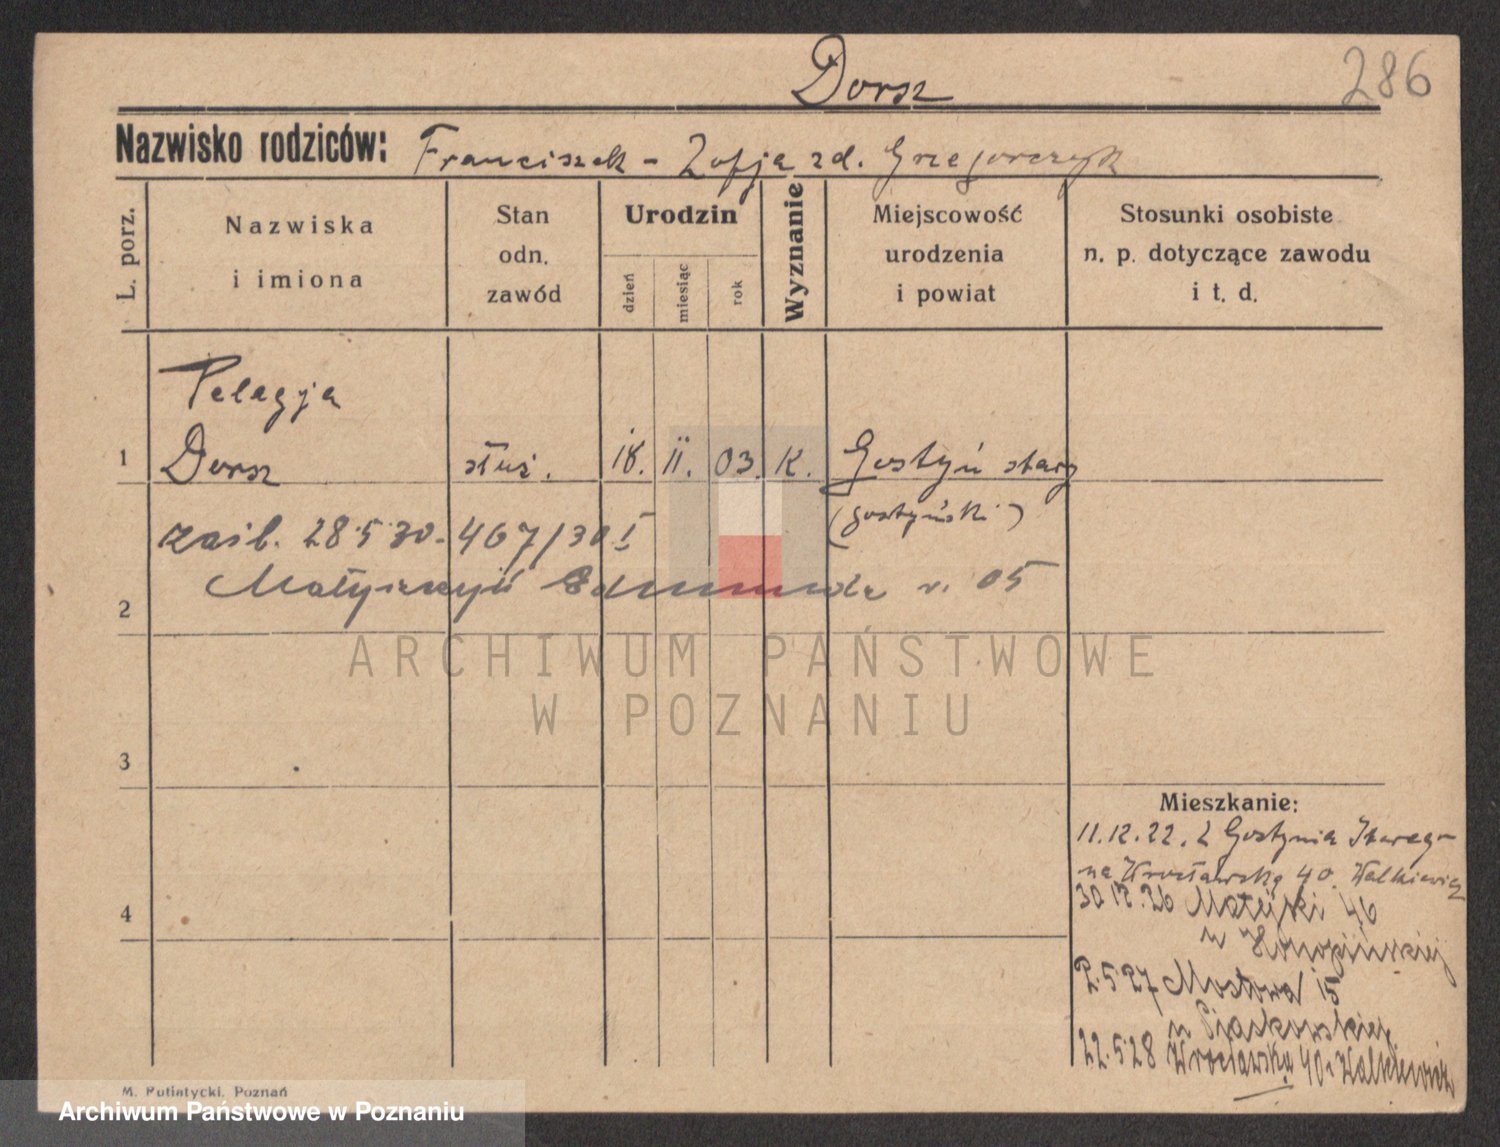 Dorsz
286
Nazwisko rodziców: Franciszek - Zofja zd. Grzegorczyk
L. porz.
Nazwiska
i imiona
Stan
odn.
zawód
Urodzin
dzień
miesiąc
rok
Wyznanie
Miejscowość
urodzenia
i powiat
Stosunki osobiste
n. p. dotyczące zawodu
i t. d.
Pelagja
1 Dorsz służ. 18. II. 03. K. Gostyń stary
(gostyński)
zaśl. 28.5.30. 467/30 I
Edmunda r. 05
2
ARCHIWUM PAŃSTWOWE
W POZNANIU
3
Mieszkanie:
11.12.22. z Gostynia Starego
na Wrocławską 40. Walkiewicz
4
30 12.26 Matejki 46
u
2.5.27 Mostowa 15
u Piaskowskiej
22.5.28 Wrocławska 40 Walkiewicz
M. Putiatycki, Poznań
Archiwum Państwowe w Poznaniu